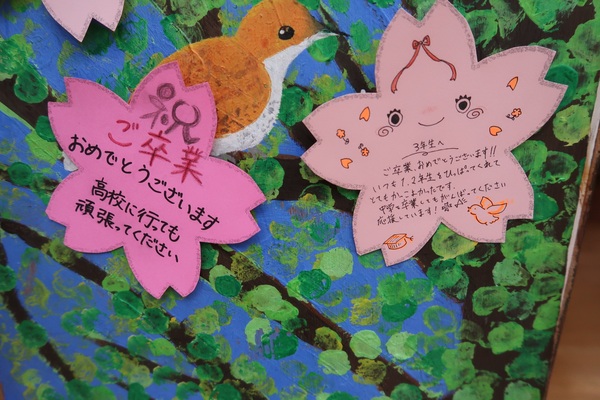 祝
ご卒業
おめでとうございます
高校に行っても
頑張ってください
3年生へ
ご卒業、おめでとうございます!!
いつも1、2年生をひっぱってくれて
とてもかっこよかったです。
中学を卒業してもがんばってください
応援しています!